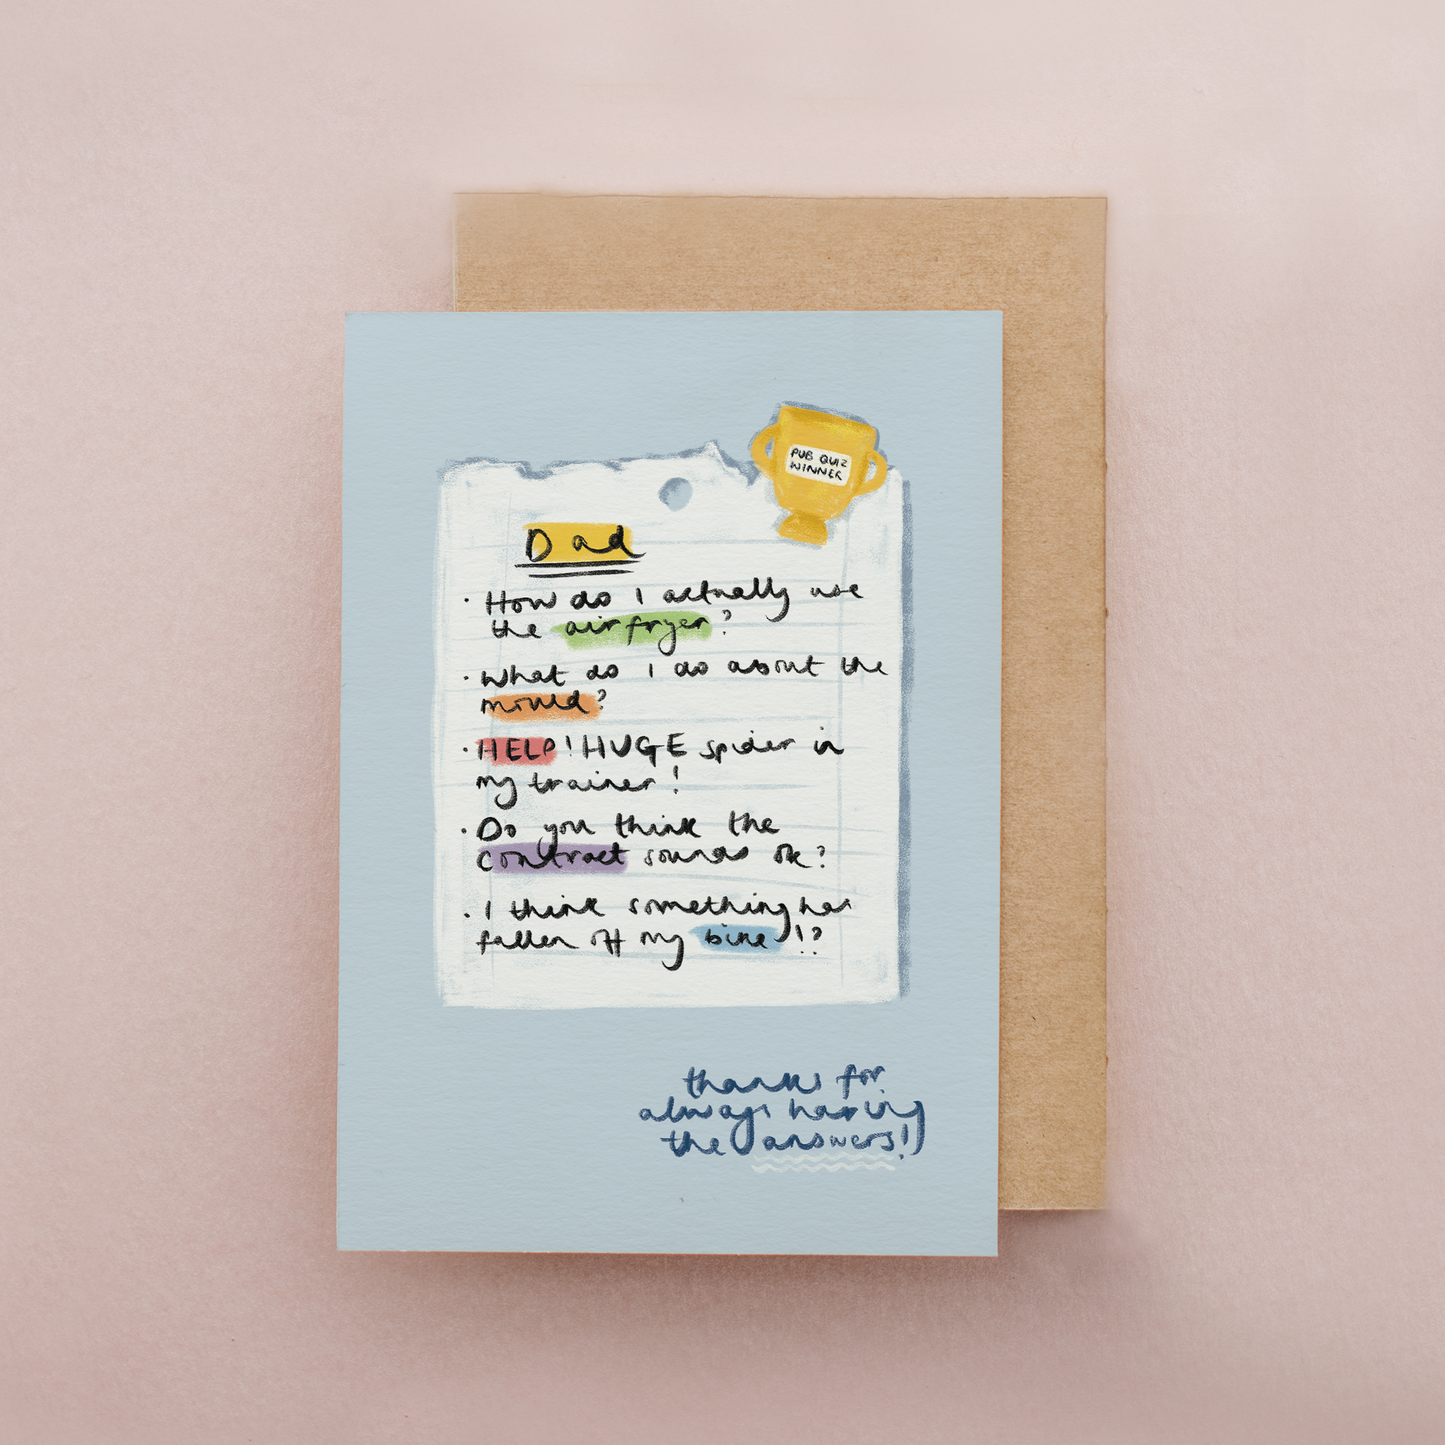 PUB QUIZ
WINNER
Dad
· How do I actually use
the air fryer?
· What do I do about the
mould?
· HELP! HUGE spider in
my trainer!
· Do you think the
contract sounds ok?
· I think something has
fallen off my bike!?
thanks for
always having
the answers!